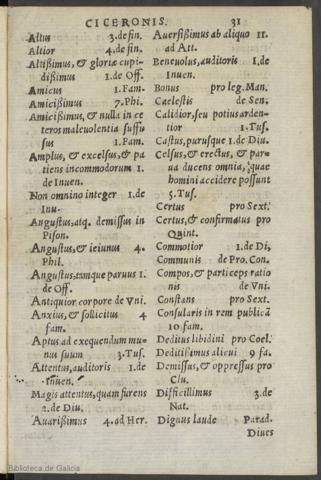 CICERONIS. 31
Altus 3.de fin.
Altior 4.de fin.
Altißimus, & gloriæ cupi-
dißimus 1.de Off.
Amicus 1.Fam.
Amicißimus 7.Phi.
Amicißimus, & nulla in ce
teros maleuolentia suffu
sus 1.Fam.
Amplus, & excelsus, & pa
tiens incommodorum 1.
de Inuen.
Non omnino integer 1.de
Inu.
Angustus, atq. demissus in
Pison.
Angustus, & ieiunus 4.
Phil.
Angustus, tamque paruus 1.
de Off.
Antiquior corpore de Vni.
Anxius, & sollicitus 4
fam.
Aptus ad exequendum mu-
nus suum 3.Tus.
Attentus, auditoris 1.de
Inuen.
Magis attentus, quam furens
2.de Diu.
Auarißimus 4.ad Her.
Auersißimus ab aliquo 11.
ad Att.
Beneuolus, auditoris 1.de
Inuen.
Bonus pro leg. Man.
Caelestis de Sen.
Calidior, seu potius arden-
tior 1.Tus.
Castus, purusque 1.de Diu.
Celsus, & erectus, & par-
ua ducens omnia, quae
homini accidere possunt
5.Tus.
Certus pro Sext.
Certus, & confirmatus pro
Quint.
Commotior 1.de Di,
Communis de Pro. Con.
Compos, & particeps ratio
nis de Vni.
Constans pro Sext.
Consularis in rem publicā
10 fam.
Deditus libidini pro Coel.
Deditißimus alicui 9 fa.
Demissus, & oppressus pro
Clu.
Difficillimus 3.de
Nat.
Dignus laude Parad.
Diues
Biblioteca de Galicia